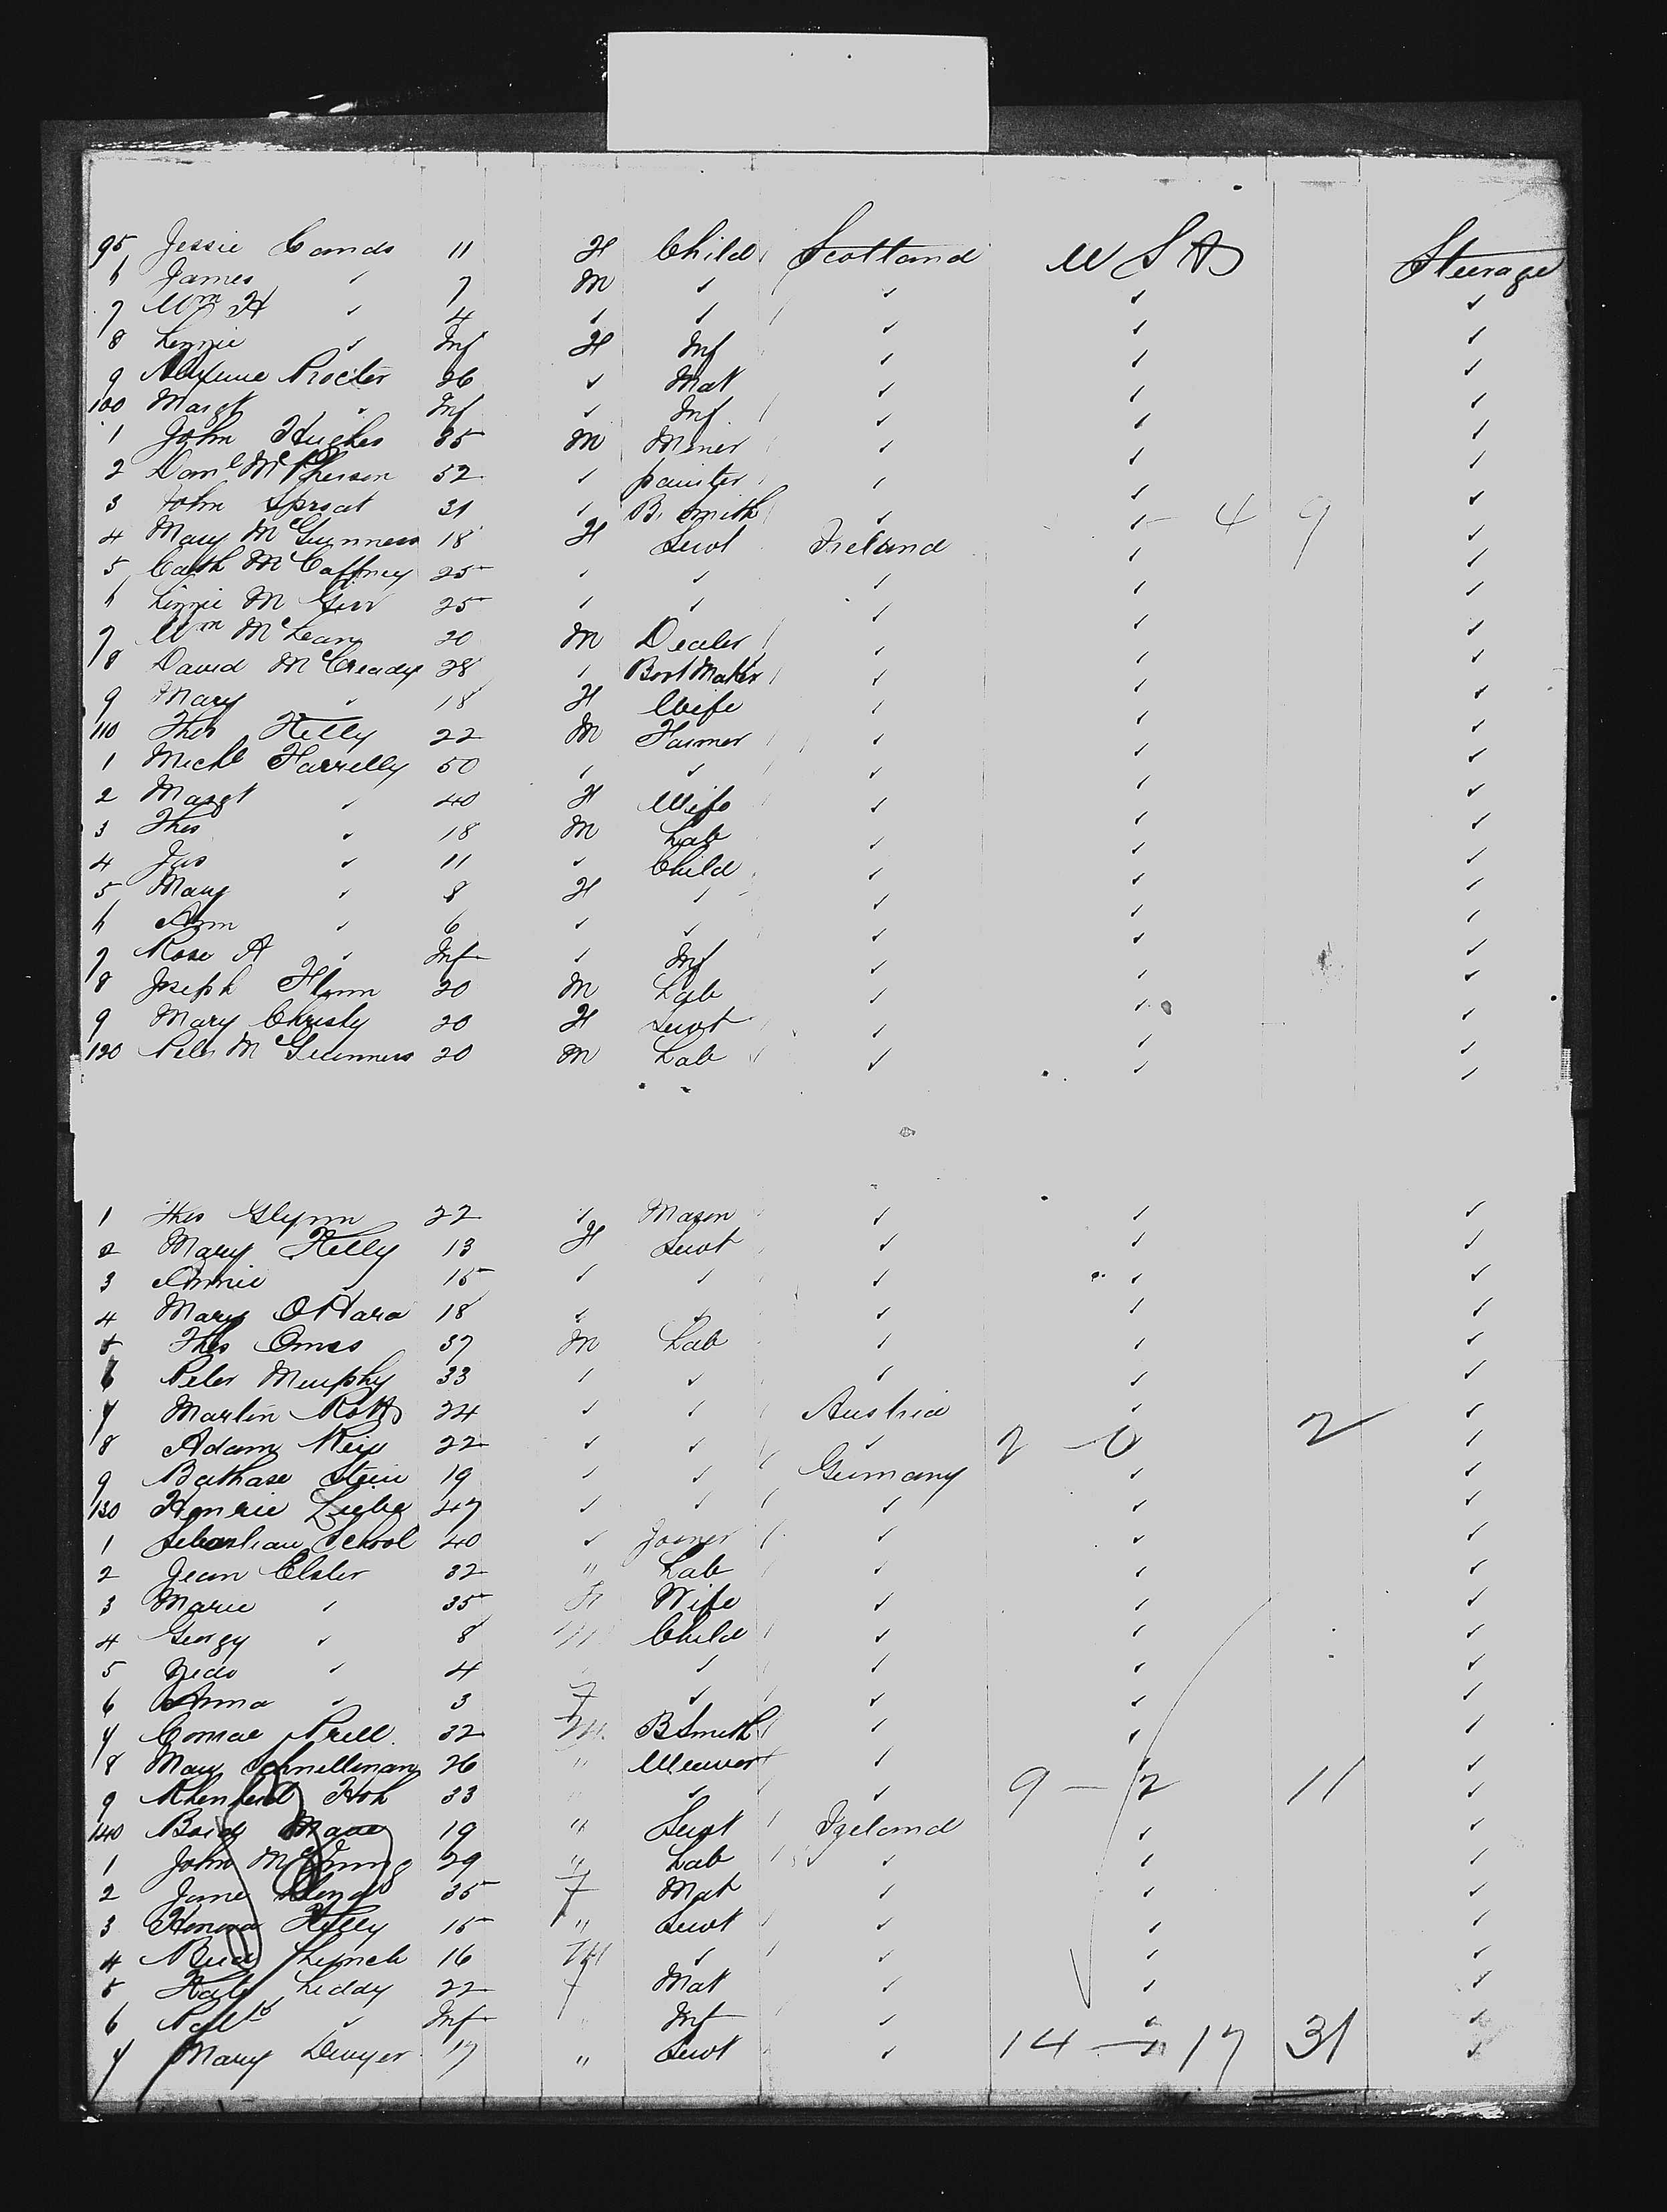 95 Jessie Cands 11 F Child Scotland U S A Steerage
6 James " 7 M " " " "
7 Wm H " 4 " " " " "
8 Lizzie " Inf F Inf " " "
9 Procter 26 " Mat " " "
100 Margt " Inf " Inf " " "
1 John Hughes 35 M Miner " " "
2 Danl McPherson 52 " painter " " "
3 John Sproat 31 " B. Smith " " - 4 9 "
4 Mary McGuinness 18 F Servt Ireland " "
5 Cath McCaffrey 25 " " " " "
6 Lizzie McGirr 25 " " " " "
7 Wm McLean 20 M Dealer " " "
8 David McCready 28 " Boot Maker " " "
9 Mary " 18 F Wife " " "
110 Thos Kelly 22 M Farmer " " "
1 Michl Farrelly 50 " " " " "
2 Margt " 40 F Wife " " "
3 Thos " 18 M Lab " " "
4 Jas " 11 " Child " " "
5 Mary " 8 F " " " "
6 Ann " 6 " " " " "
7 Rose A " Inf " Inf " " "
8 Joseph Flynn 20 M Lab " " "
9 Mary Christy 20 F Servt " " "
120 Peter McGuinness 20 M Lab " " "
1 Thos Glynn 22 " Mason " " "
2 Mary Kelly 13 F Servt " " "
3 Annie " 15 " " " " "
4 Mary O'Hara 18 " " " " "
5 Thos 37 M Lab " " "
6 Peter Murphy 33 " " " " "
7 Martin 24 " " Austria " "
8 Adam 22 " " " 2 - 0 2 "
9 Stein 19 " " Germany " "
130 47 " " " " "
1 Sebastian School 40 " Joiner " " "
2 Jean Elster 32 " Lab " " "
3 Marie " 35 F Wife " " "
4 Georgy " 8 M Child " " "
5 " 4 " " " " "
6 Anna " 3 F " " " "
7 32 M. B Smith " " "
8 26 " Weaver " " "
9 33 " " " 9 - 2 11 "
140 19 " Servt Ireland " "
1 John 29 " Lab " " "
2 Jane 35 F Mat " " "
3 Kelly 15 " Servt " " "
4 Lynch 16 M " " " "
5 Kate Liddy 22 F Mat " " "
6 " Inf " Inf " " "
7 Mary Dwyer 17 " Servt " 14 - 17 31 "